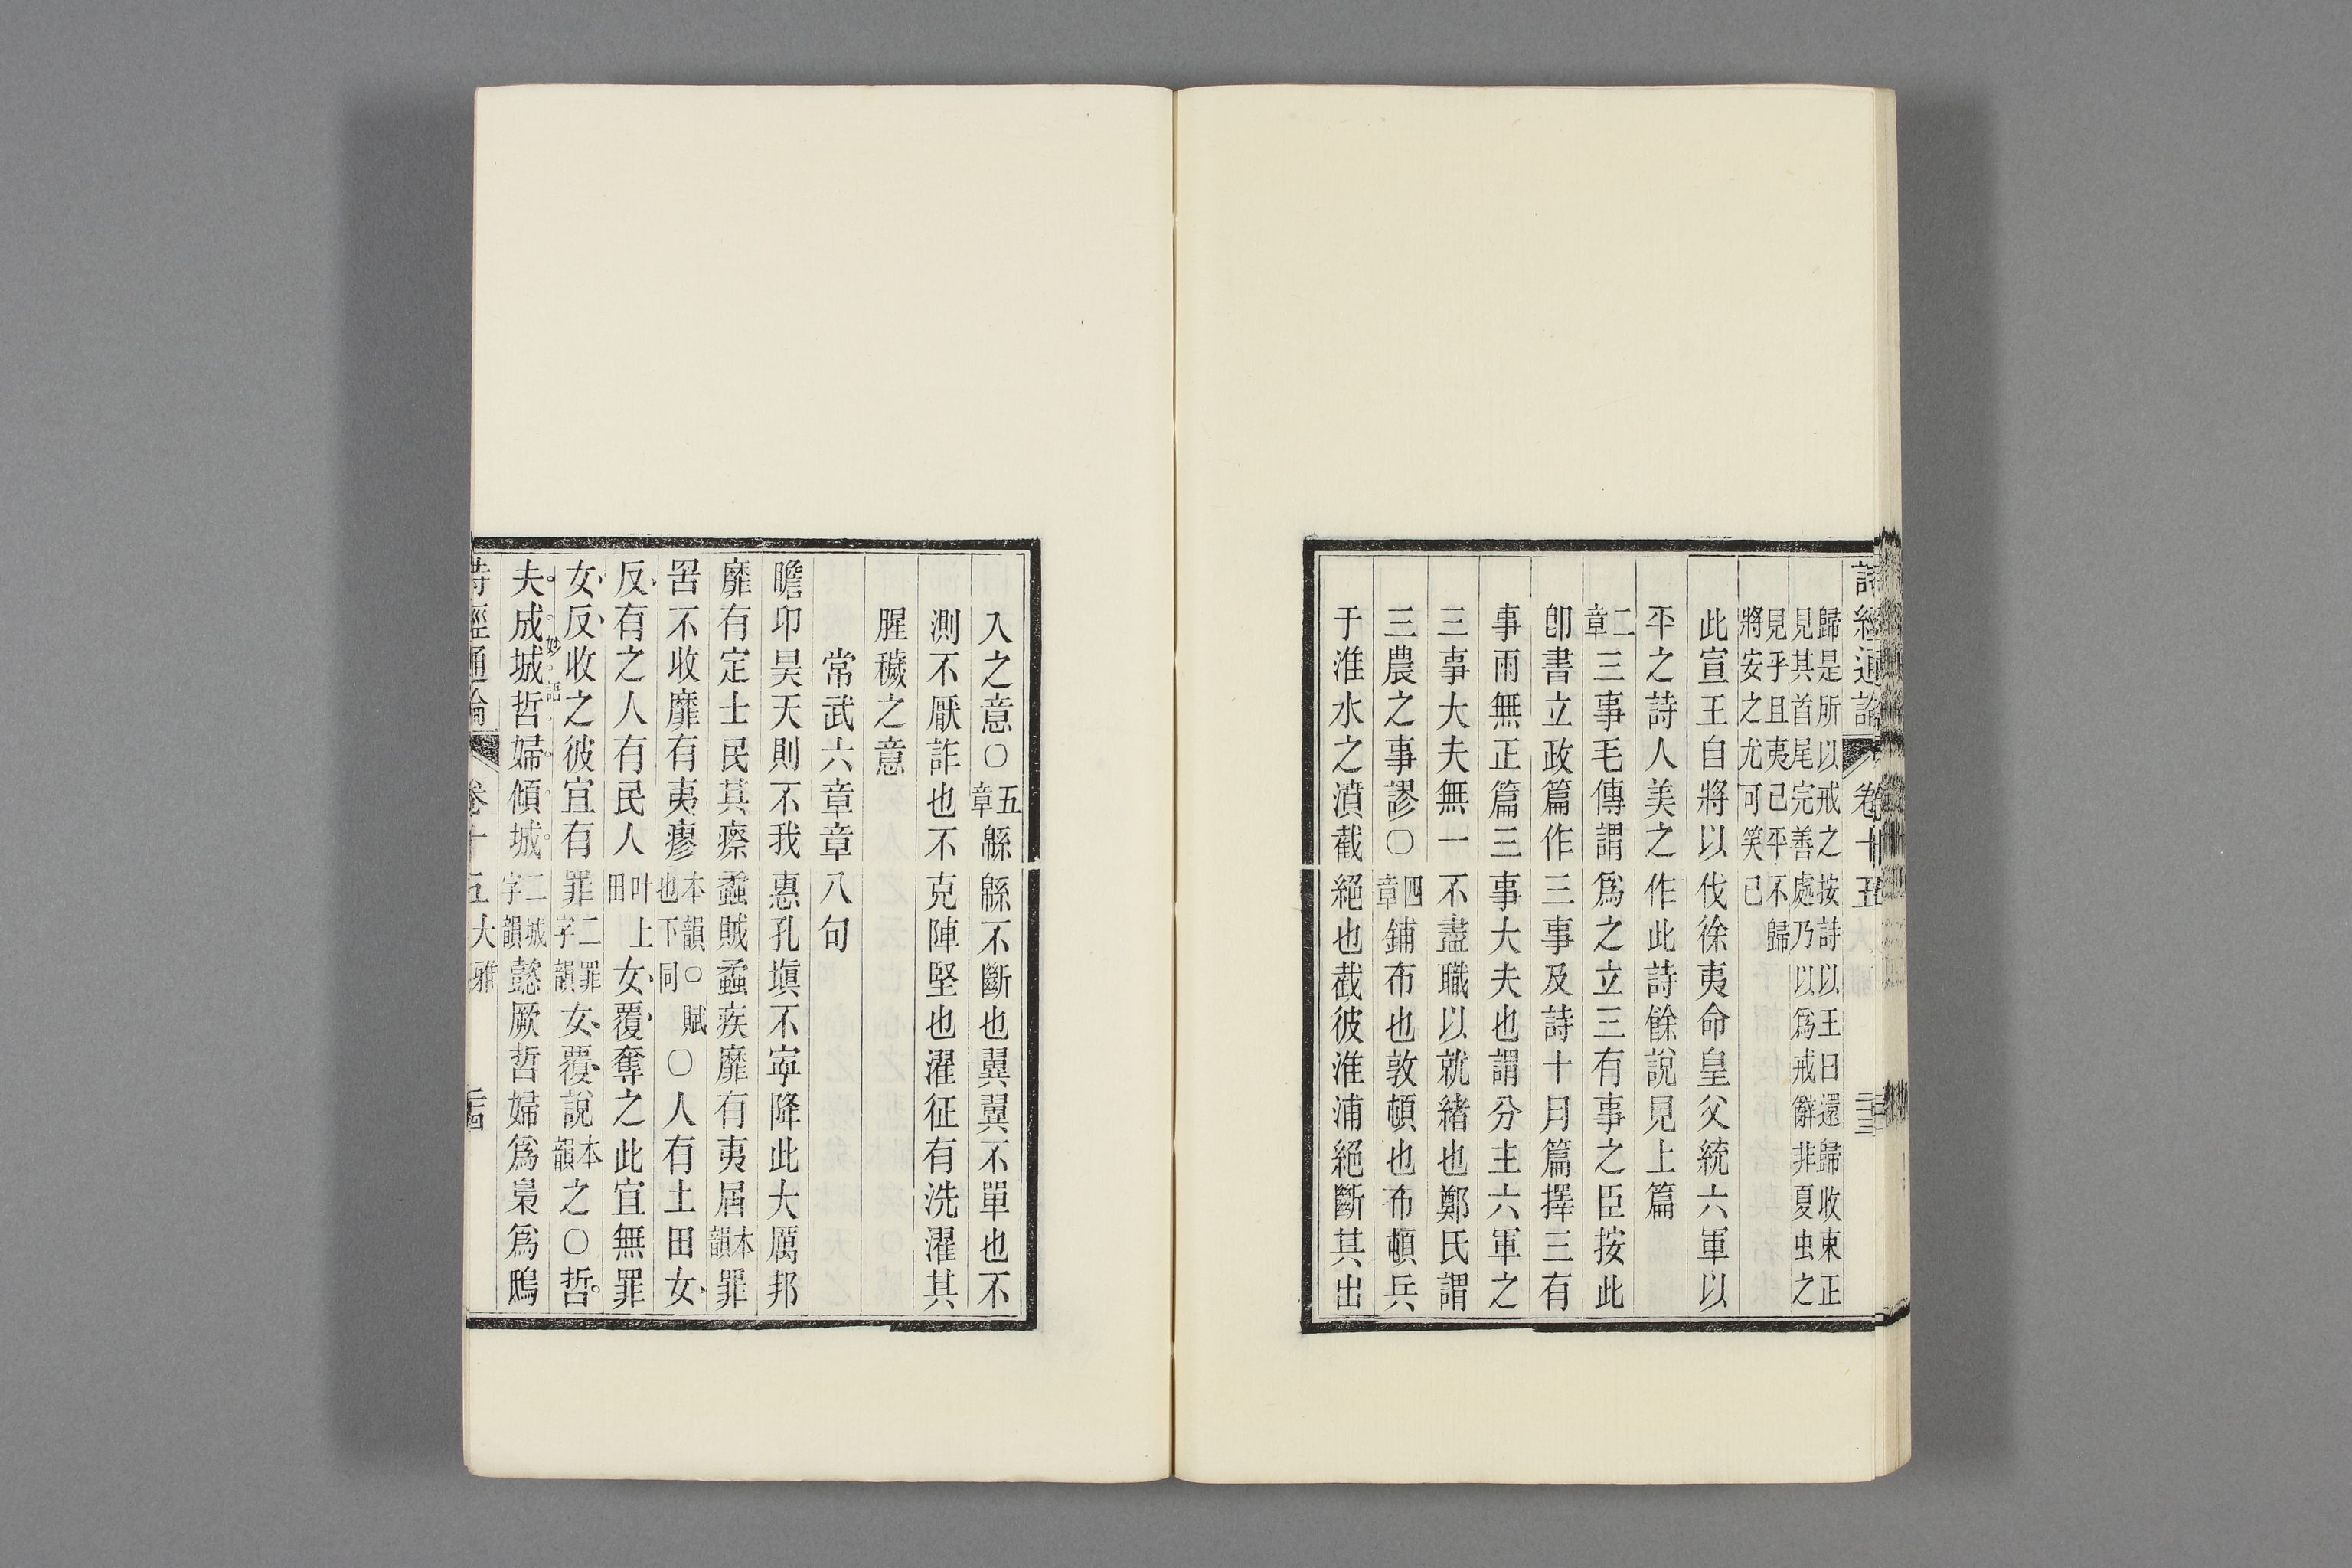 詩經通論 卷十五 三三
歸是所以戒之按詩以王曰還歸收束正
見其首尾完善處乃以爲戒辭非夏虫之
見乎且夷已平不歸
將安之尤可笑已
此宣王自將以伐徐夷命皇父統六軍以
平之詩人美之作此詩餘說見上篇
二章三事毛傳謂爲之立三有事之臣按此
卽書立政篇作三事及詩十月篇擇三有
事雨無正篇三事大夫也謂分主六軍之
三事大夫無一不盡職以就緒也鄭氏謂
三農之事謬○四章鋪布也敦頓也布頓兵
于淮水之濆截絕也截彼淮浦絕斷其出
入之意○五章緜緜不斷也翼翼不單也不
測不厭詐也不克陣堅也濯征有洗濯其
腥穢之意
常武六章章八句
瞻卬昊天則不我惠孔塡不寧降此大厲邦
靡有定士民其瘵蟊賊蟊疾靡有夷屆本韻罪
罟不收靡有夷瘳本韻○賦也下同○人有土田女
反有之人有民人叶上田女覆奪之此宜無罪
女反收之彼宜有罪二罪字韻女覆說本韻之○哲
妙語
夫成城哲婦傾城二城字韻懿厥哲婦爲梟爲鴟
詩經通論 卷十五 大雅